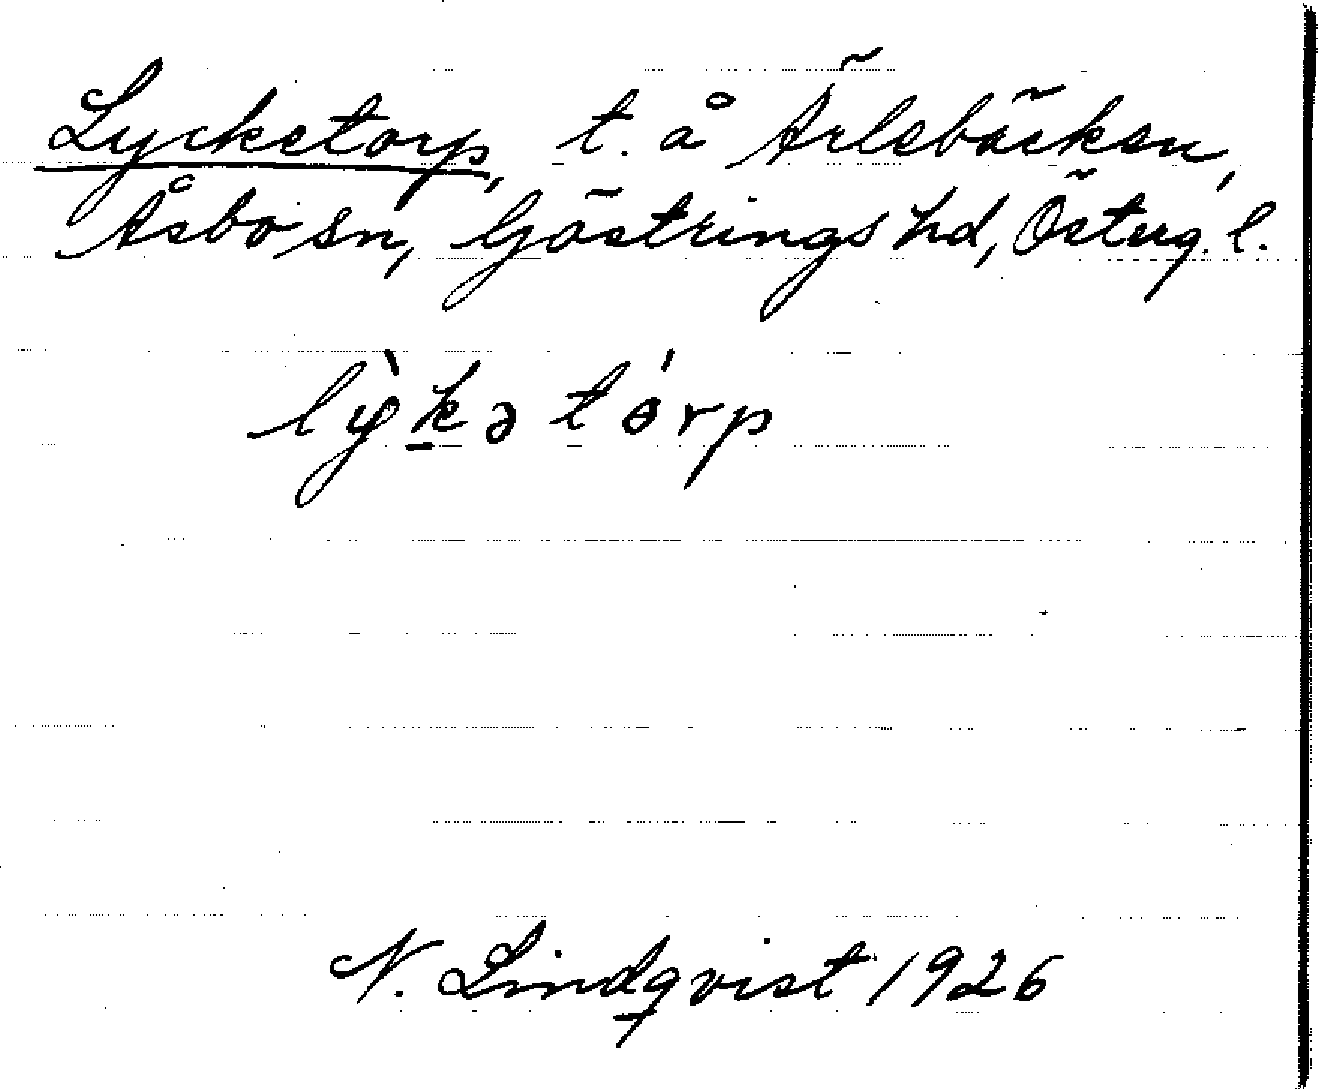 Lycketorp, t. å Ärlebäcken,
Åsbo sn, Göstrings hd, Österg. l.
lỳk̲ətórp
N. Lindqvist 1926